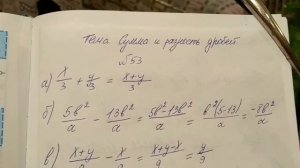 Тема Сумма и разность дробей
№ 53
а) x/3 + y/3 = x+y/3
б) 5b²/a - 13b²/a = 5b²-13b²/a = b²(5-13)/a = -8b²/a
в) x+y/9 - x/9 = x+y-x/9 = y/9